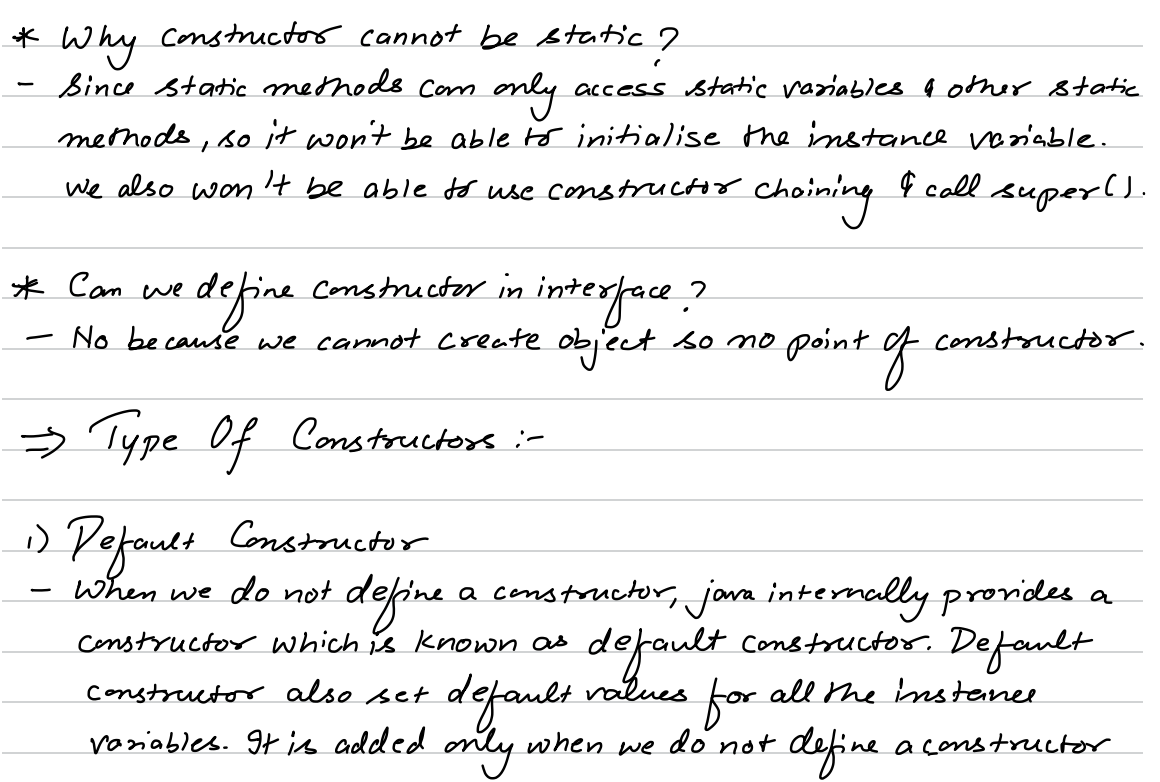 * Why constructor cannot be static?
- Since static methods can only access static variables & other static
methods, so it won't be able to initialise the instance variable.
We also won't be able to use constructor chaining & call super().
* Can we define constructor in interface?
- No because we cannot create object so no point of constructor.
⇒ Type Of Constructors :-
1) Default Constructor
- When we do not define a constructor, java internally provides a
constructor which is known as default constructor. Default
constructor also set default values for all the instance
variables. It is added only when we do not define a constructor